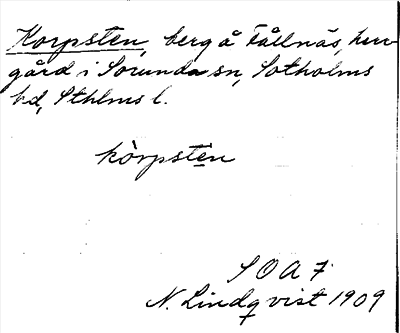 Korpsten, berg å Fållnäs, herr-
gård i Sorunda sn, Sotholms
hd, Sthlms l.
kòrpstęn
S O A 7
N. Lindqvist 1909